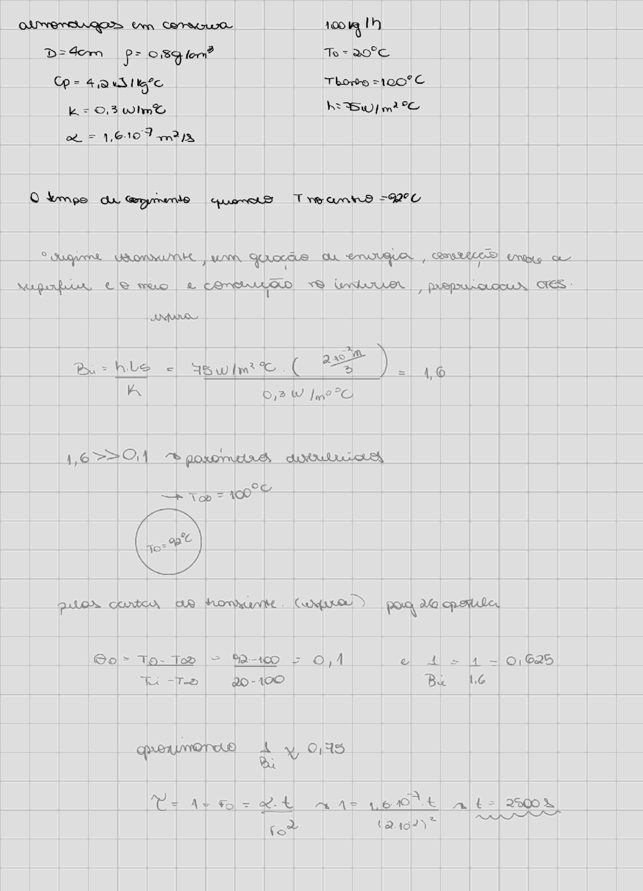 almondigas em conserva 100 kg/h
D = 4cm ρ = 0,8g/cm³ T0 = 20°C
Cp = 4,2 kJ/kg°C Tbanho = 100°C
K = 0,3 W/m°C h = 75W/m²°C
α = 1,6.10⁻⁷ m²/s
O tempo de cozimento quando T no centro = 92°C
° regime transiente, sem geração de energia, convecção entre a
superfície e o meio e condução no interior, propriedades ctes.
esfera
Bi = h.Ls/K = 75W/m²°C . (2·10⁻²m/3)/0,3 W/m°C = 1,6
1,6 >> 0,1 → parâmetros distribuidos
→ T∞ = 100°C
T0 = 92°C
pelas cartas do transiente. (esfera) pag 26 apostila
θ0 = T0 - T∞/Ti - T∞ = 92-100/20-100 = 0,1 e 1/Bi = 1/1,6 = 0,625
aproximando 1/Bi ≈ 0,75
τ = 1 = F0 = α.t/r0² → 1 = 1,6.10⁻⁷.t/(2.10⁻²)² → t = 2500s